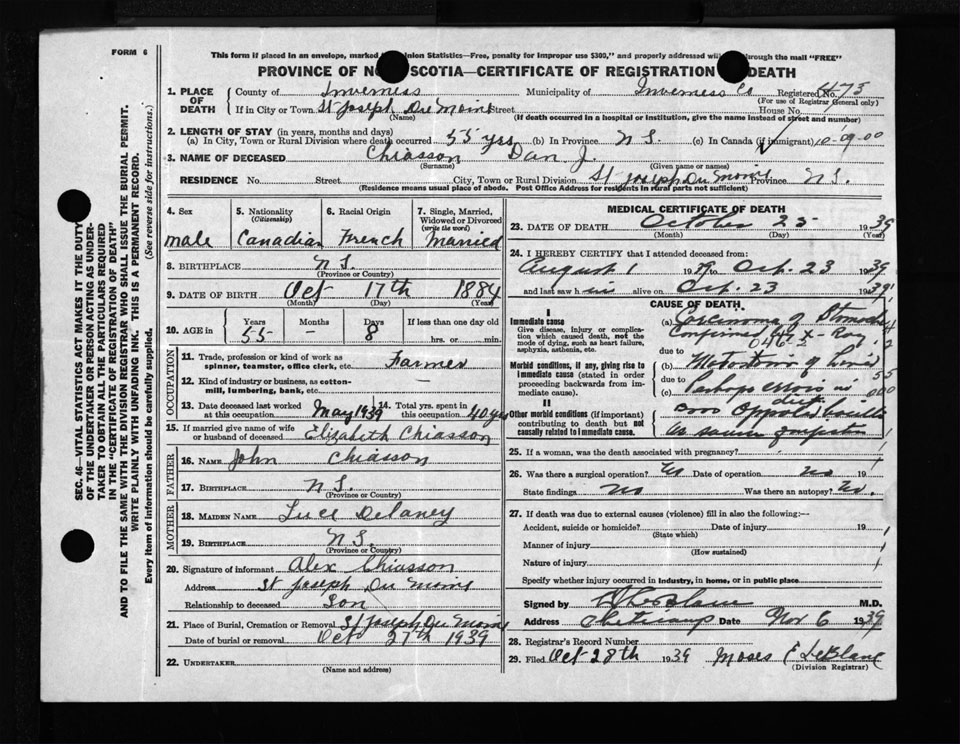 FORM 6
This form if placed in an envelope, marked inion Statistics—Free, penalty for improper use $300," and properly addressed wi through the mail "FREE"
PROVINCE OF NO SCOTIA—CERTIFICATE OF REGISTRATION DEATH
1. PLACE OF DEATH County of Inverness Municipality of Inverness Co Registered No. 473
(For use of Registrar General only)
If in City or Town St Joseph Du Moine Street House No.
(Name) (If death occurred in a hospital or institution, give the name instead of street and number)
2. LENGTH OF STAY (in years, months and days)
(a) In City, Town or Rural Division where death occurred 55 yrs (b) In Province N S. (c) In Canada (if immigrant) 10-09-00
3. NAME OF DECEASED Chiasson Dan J.
(Surname) (Given name or names)
RESIDENCE No. Street City, Town or Rural Division St Joseph Du Moine Province N S.
(Residence means usual place of abode. Post Office Address for residents in rural parts not sufficient)
4. Sex male
5. Nationality (Citizenship) Canadian
6. Racial Origin French
7. Single, Married, Widowed or Divorced (write the word) Married
8. BIRTHPLACE N S.
(Province or Country)
9. DATE OF BIRTH Oct 17th 1884
(Month) (Day) (Year)
10. AGE in Years 55 Months – Days 8 If less than one day old
hrs. or min.
OCCUPATION
11. Trade, profession or kind of work as spinner, teamster, office clerk, etc. Farmer
12. Kind of industry or business, as cotton-mill, lumbering, bank, etc. —
13. Date deceased last worked at this occupation. May 1939 14. Total yrs. spent in this occupation. 40 yrs
15. If married give name of wife or husband of deceased Elizabeth Chiasson
FATHER
16. Name John Chiasson
17. Birthplace N S.
(Province or Country)
MOTHER
18. Maiden Name Luce Delaney
19. Birthplace N S.
(Province or Country)
20. Signature of informant Alex Chiasson
Address St Joseph Du Moine
Relationship to deceased Son
21. Place of Burial, Cremation or Removal St Joseph Du Moine
Date of burial or removal Oct 27th 1939
22. Undertaker
(Name and address)
MEDICAL CERTIFICATE OF DEATH
23. DATE OF DEATH October 25 1939
(Month) (Day) (Year)
24. I HEREBY CERTIFY that I attended deceased from:
August 1 1939 to Oct. 23 1939
and last saw h im alive on Oct. 23 1939
CAUSE OF DEATH
I
Immediate cause
Give disease, injury or complication which caused death, not the mode of dying, such as heart failure, asphyxia, asthenia, etc.
(a) Carcinoma of Stomach
Confirmed by X-Ray
046
due to
Morbid conditions, if any, giving rise to immediate cause (stated in order proceeding backwards from immediate cause).
(b) of Liver
due to
(c) Perhaps
II
Other morbid conditions (if important) contributing to death but not causally related to immediate cause.
as
25. If a woman, was the death associated with pregnancy?
26. Was there a surgical operation? No Date of operation no 19
State findings no Was there an autopsy? No.
27. If death was due to external causes (violence) fill in also the following:—
Accident, suicide or homicide? Date of injury 19
(State which)
Manner of injury
(How sustained)
Nature of injury
Specify whether injury occurred in industry, in home, or in public place
Signed by M.D.
Address Cheticamp Date Nov 6 1939
28. Registrar's Record Number
29. Filed Oct 28th 1939 Moses E LeBlanc
(Division Registrar)
SEC. 46—VITAL STATISTICS ACT MAKES IT THE DUTY
OF THE UNDERTAKER OR PERSON ACTING AS UNDER-
TAKER TO OBTAIN ALL THE PARTICULARS REQUIRED
IN THE "CERTIFICATE OF REGISTRATION OF DEATH"
AND TO FILE THE SAME WITH THE DIVISION REGISTRAR WHO SHALL ISSUE THE BURIAL PERMIT.
WRITE PLAINLY WITH UNFADING INK. THIS IS A PERMANENT RECORD.
Every item of information should be carefully supplied. (See reverse side for instructions.)